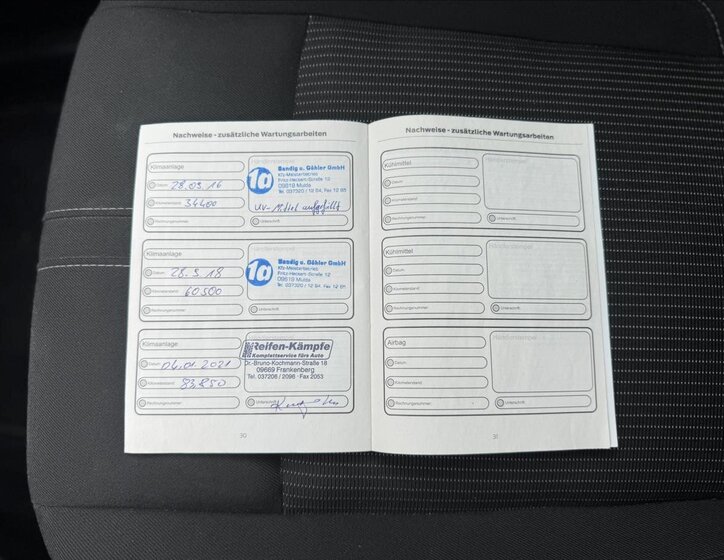 Nachweise - zusätzliche Wartungsarbeiten
Klimaanlage
Datum 28.09.16
Kilometerstand 34400
Rechnungsnummer
Händlerstempel
1a
Bandig u. Gähler GmbH
Kfz-Meisterbetrieb
Fritz-Heckert-Straße 12
09619 Mulda
Tel. 037320 / 12 84, Fax 12 85
UV-Mittel aufgefüllt
Unterschrift
Klimaanlage
Datum 28.5.18
Kilometerstand 60500
Rechnungsnummer
1a
Bandig u. Gähler GmbH
Kfz-Meisterbetrieb
Fritz-Heckert-Straße 12
09619 Mulda
Tel. 037320 / 12 84, Fax 12 85
Unterschrift
Klimaanlage
Datum 04.01.2021
Kilometerstand 83.850
Rechnungsnummer
Reifen-Kämpfe
Komplettservice fürs Auto
Dr.-Bruno-Kochmann-Straße 18
09669 Frankenberg
Tel. 037206 / 2096 · Fax 2053
Unterschrift
30
Nachweise - zusätzliche Wartungsarbeiten
Kühlmittel
Datum
Kilometerstand
Rechnungsnummer
Händlerstempel
Unterschrift
Kühlmittel
Datum
Kilometerstand
Rechnungsnummer
Händlerstempel
Unterschrift
Airbag
Datum
Kilometerstand
Rechnungsnummer
Händlerstempel
Unterschrift
31